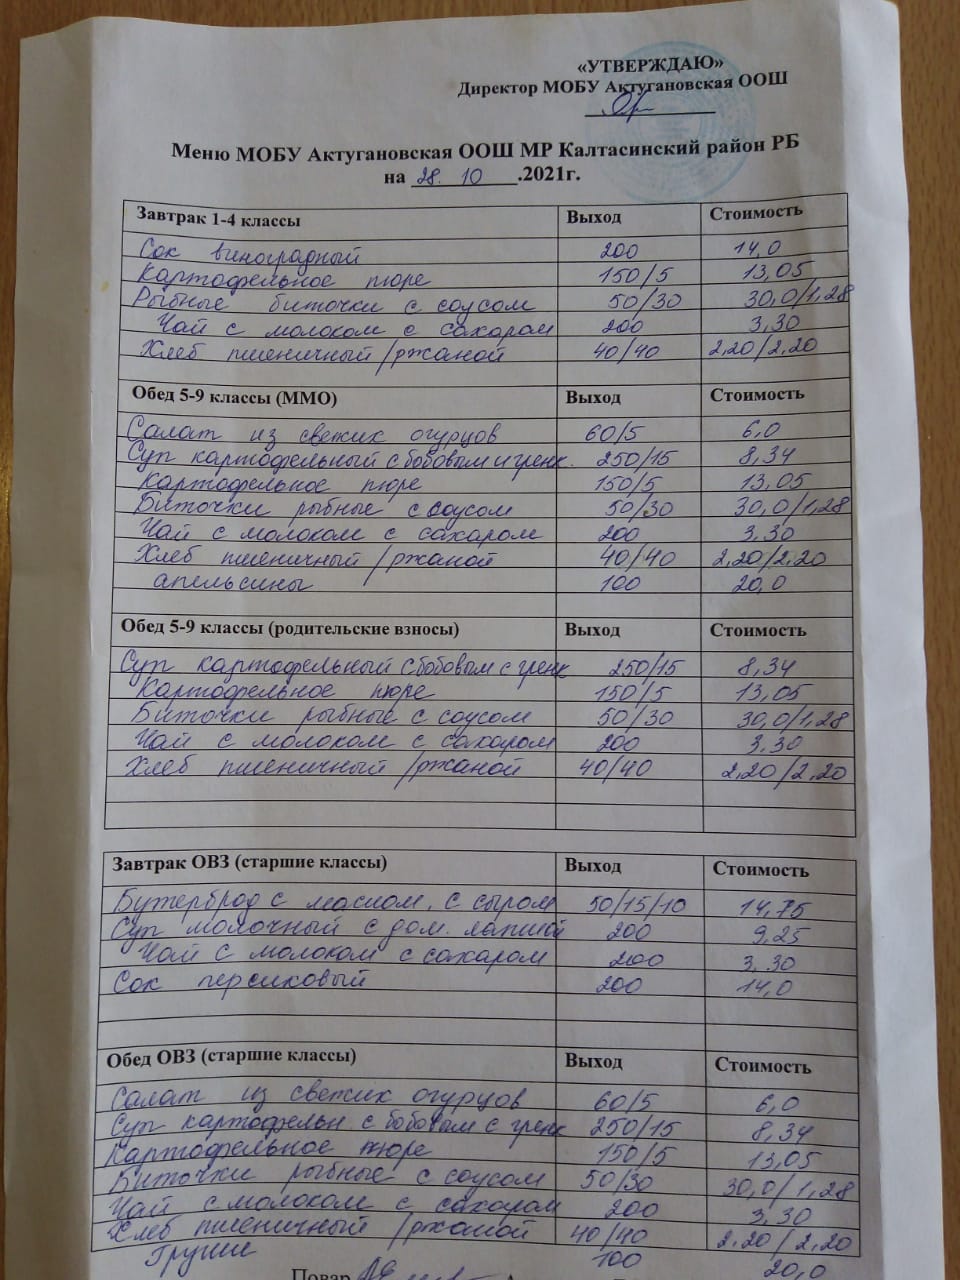 «УТВЕРЖДАЮ»
Директор МОБУ Актугановская ООШ
Меню МОБУ Актугановская ООШ МР Калтасинский район РБ
на 28. 10 .2021г.
Завтрак 1-4 классы Выход Стоимость
Сок виноградный 200 14,0
Картофельное пюре 150/5 13,05
Рыбные биточки с соусом 50/30 30,0/1,28
Чай с молоком с сахаром 200 3,30
Хлеб пшеничный/ржаной 40/40 2,20/2,20
Обед 5-9 классы (ММО) Выход Стоимость
Салат из свежих огурцов 60/5 6,0
Суп картофельный с бобовым и гренк. 250/15 8,34
Картофельное пюре 150/5 13,05
Биточки рыбные с соусом 50/30 30,0/1,28
Чай с молоком с сахаром 200 3,30
Хлеб пшеничный/ржаной 40/40 2,20/2,20
апельсины 100 20,0
Обед 5-9 классы (родительские взносы) Выход Стоимость
Суп картофельный с бобовым с гренк 250/15 8,34
Картофельное пюре 150/5 13,05
Биточки рыбные с соусом 50/30 30,0/1,28
Чай с молоком с сахаром 200 3,30
Хлеб пшеничный/ржаной 40/40 2,20/2,20
Завтрак ОВЗ (старшие классы) Выход Стоимость
Бутерброд с маслом, с сыром 50/15/10 14,75
Суп молочный с дом. лапшой 200 9,25
Чай с молоком с сахаром 200 3,30
Сок персиковый 200 14,0
Обед ОВЗ (старшие классы) Выход Стоимость
Салат из свежих огурцов 60/5 6,0
Суп картофельн с бобовым с гренк 250/15 8,34
Картофельное пюре 150/5 13,05
Биточки рыбные с соусом 50/30 30,0/1,28
Чай с молоком с сахаром 200 3,30
Хлеб пшеничный/ржаной 40/40 2.20/2,20
Груши 100 20,0
Повар